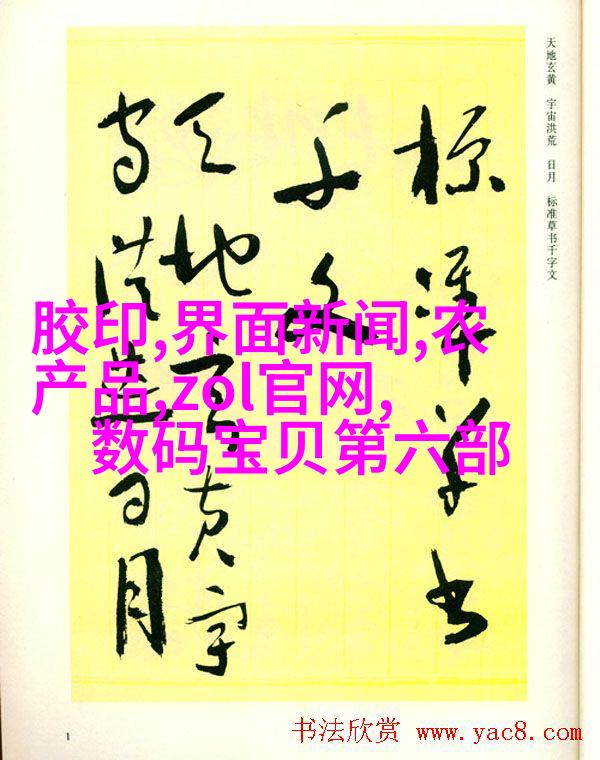 天地玄黄 宇宙洪荒 日月 标准草书千字文
标准草书
千文
天地玄黄宇
宙洪荒日月
胶印,界面新闻,农
产品,zol官网,
数码宝贝第六部
1
书法欣赏 www.yac8.com